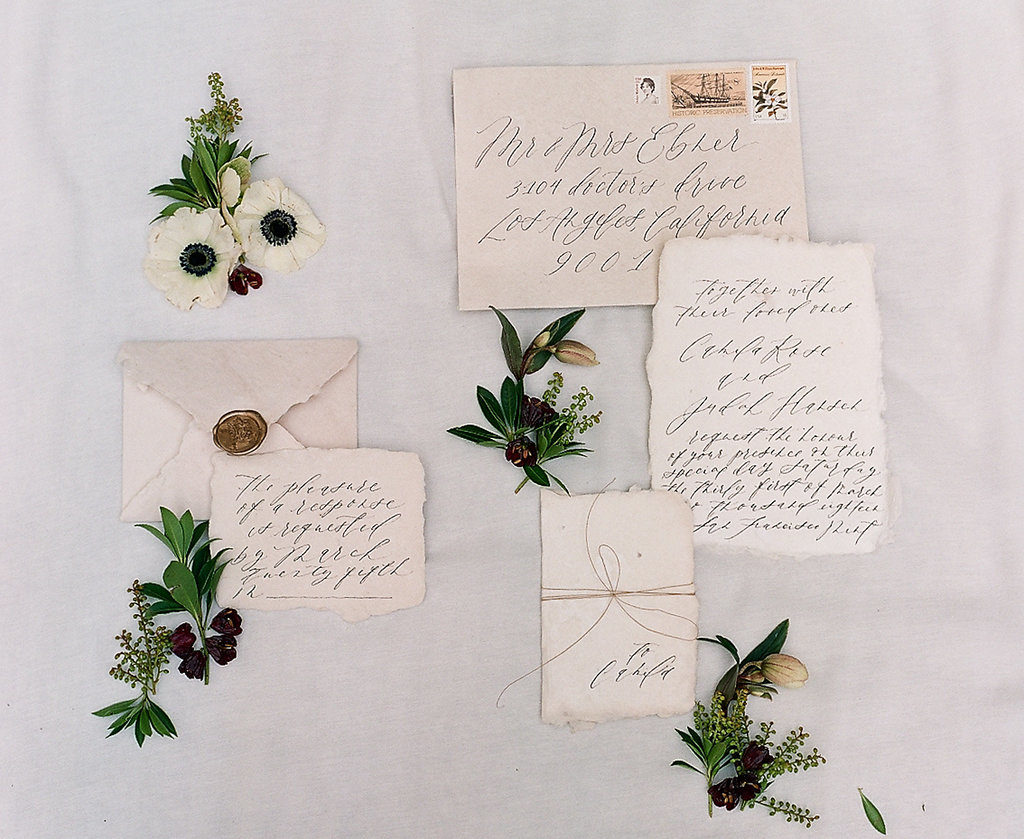 HISTORIC PRESERVATION
Mr & Mrs Ebner
3104 doctors drive
Los Angeles, California
9001
together with
their loved ones
Camila Rose
and
Judah Hansen
request the honour
of your presence on their
special day Saturday
the thirty first of march
thousand eighteen
San Francisco Mint
The pleasure
of a response
is requested
by March
twenty fifth
M
to
Camila